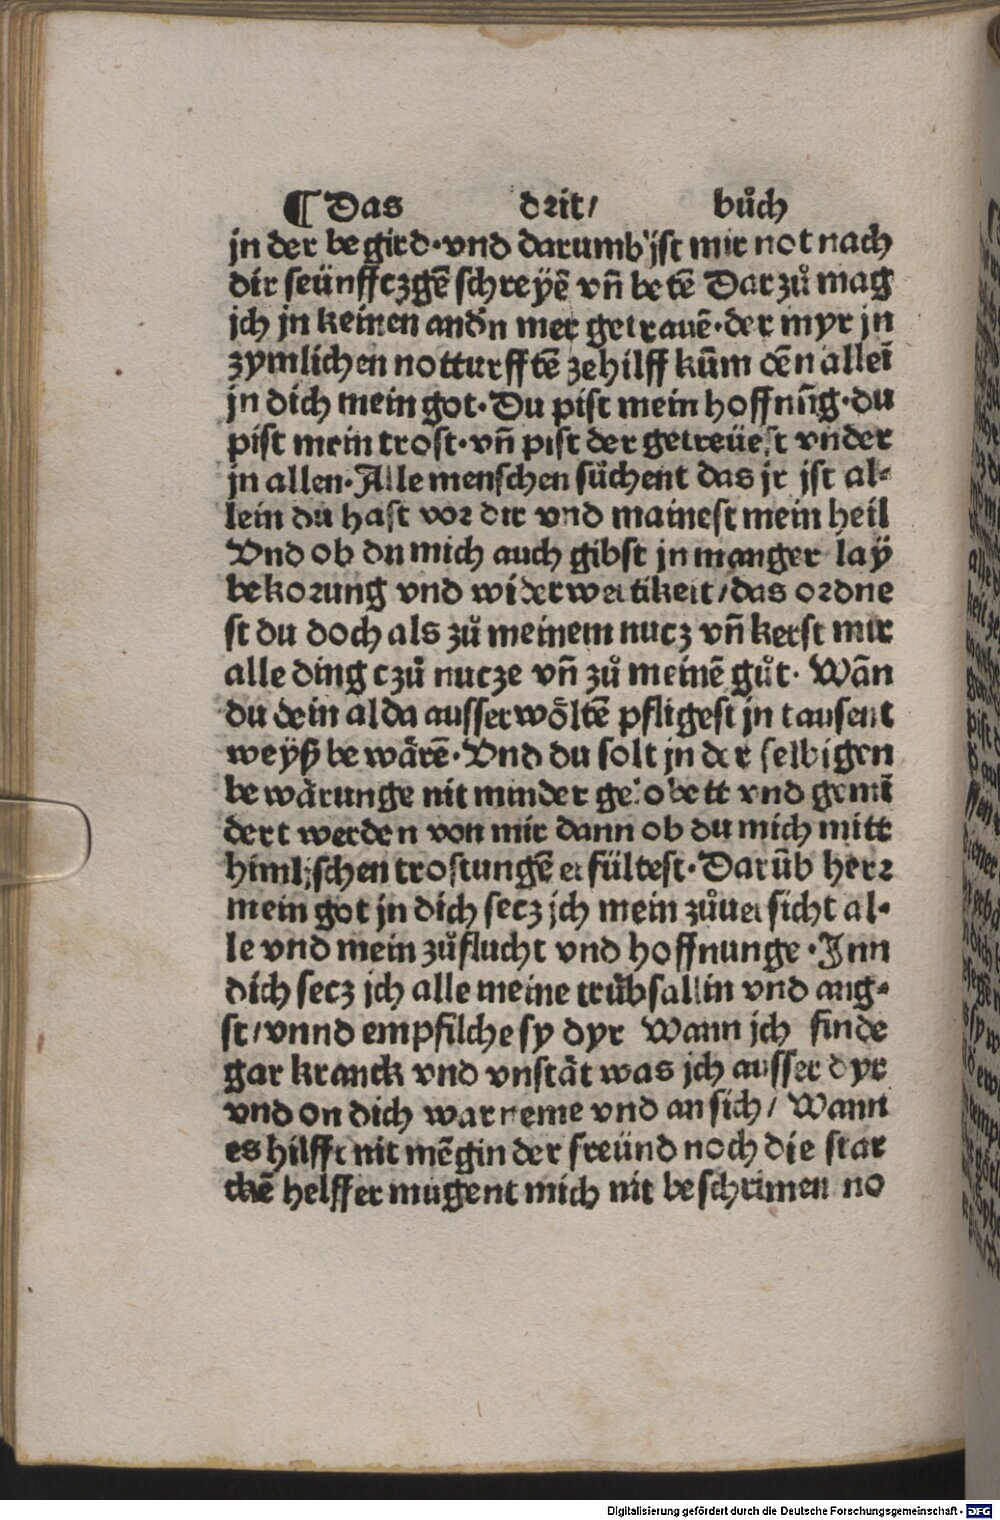 ¶ Das drit/ bůch
jn der begird·vnd darumb ist mir not nach
dir seünfftzgē schreyē vñ betē Dar zů mag
jch jn keinen andn̄ mer getrauē·der myr jn
zymlichen notturfftē ze hilff kūm dēn alleī
jn dich mein got·Du pist mein hoffnūg·du
pist mein trost·vñ pist der getreüest vnder
jn allen·Alle menschen süchent das jr jst al⸗
lein du hast vor dir vnd mainest mein heil
Vnd ob du mich auch gibst jn manger laÿ
bekorung vnd widerwertikeit/das ordne
st du doch als zů meinem nucz vñ kerst mir
alle ding czů nucze vñ zů meinē gůt· Wān
du dein alda ausserwöltē pfligest jn tausent
weÿß bewärē·Vnd du solt jn der selbigen
bewärunge nit minder gelobett vnd gemī
dert werden von mir dann ob du mich mitt
himlischen trostungē erfültest·Darūb herr
mein got jn dich secz jch mein zůuersicht al⸗
le vnd mein zůflucht vnd hoffnunge·Jnn
dich secz jch alle meine trůbsallin vnd ang⸗
st/vnnd empfilche sy dyr Wann jch finde
gar kranck vnd vnstät was jch ausser dyr
vnd on dich warneme vnd an sich/ Wann
es hilfft nit mēgin der freünd noch die star
ckē helffer mugent mich nit beschrimen no
Digitalisierung gefördert durch die Deutsche Forschungsgemeinschaft - DFG